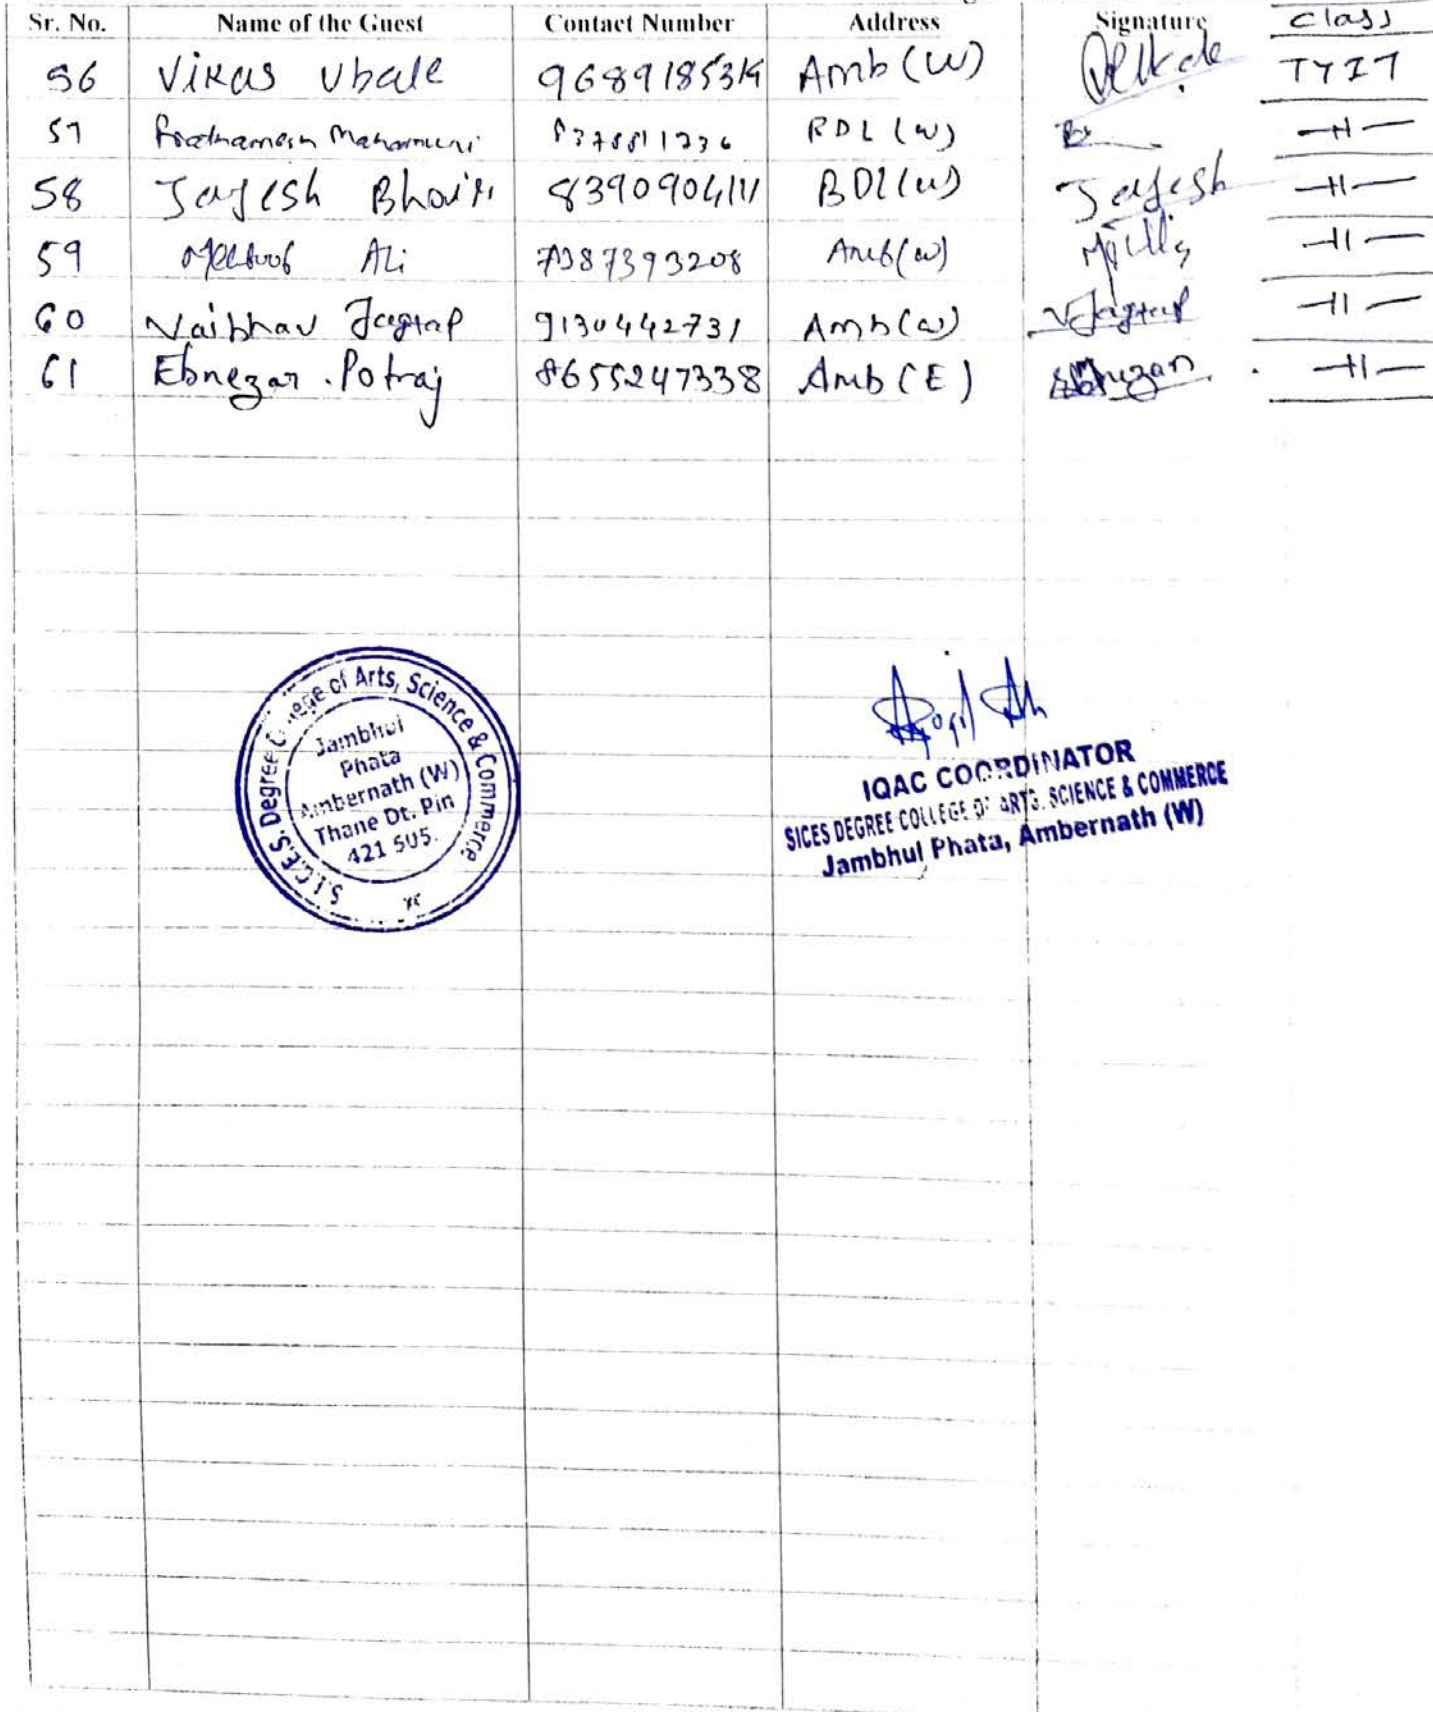 Sr. No. Name of the Guest Contact Number Address Signature Class
56 Vikas Ubale 9689185314 Amb (W) TYIT
57 Prathamesh Mahamuni BDL (W) -11-
58 Jayesh 8390904111 BDL (W) Jayesh -11-
59 Ali 7387393208 Amb (W) -11-
60 Vaibhav Jagtap 9130442731 Amb (W) VJagtap -11-
61 Ebnezar . Potraj 8655247338 Amb (E) Ebnezar -11-
S.I.C.E.S. Degree College of Arts, Science & Commerce
Jambhul
Phata
Ambernath (W)
Thane Dt. Pin
421 505.
IQAC COORDINATOR
SICES DEGREE COLLEGE OF ARTS, SCIENCE & COMMERCE
Jambhul Phata, Ambernath (W)